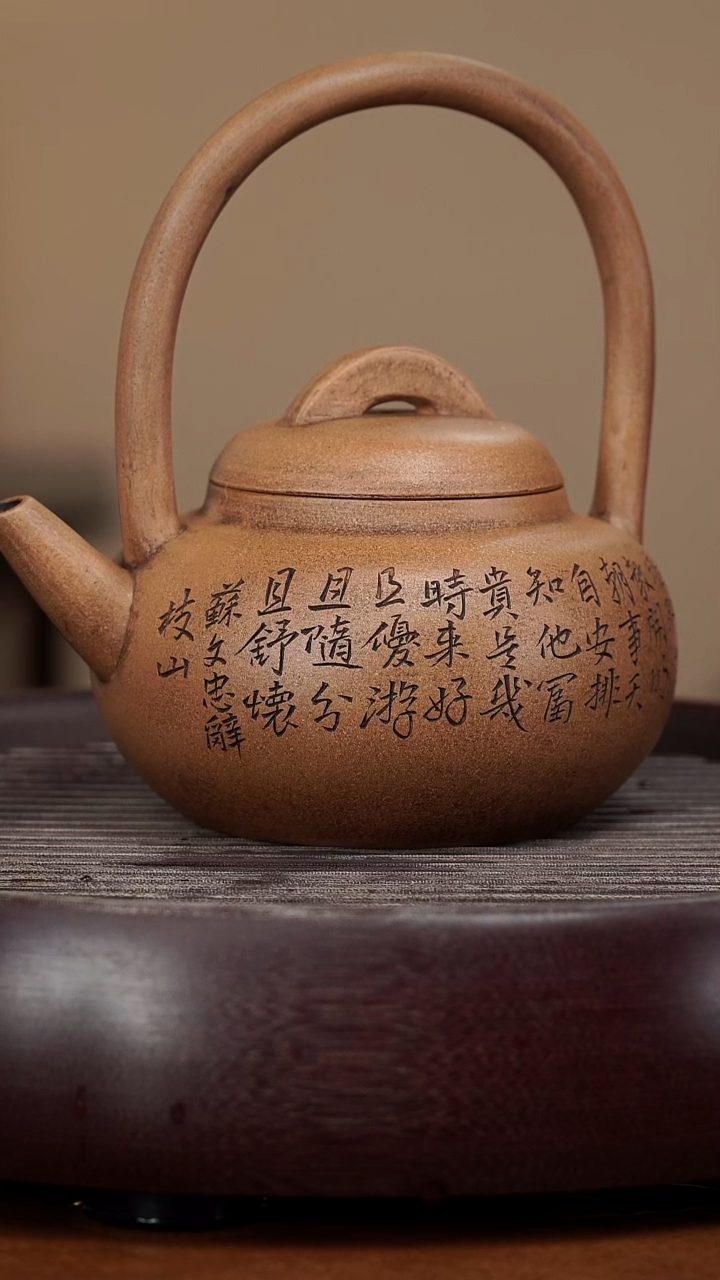 事天
自安排
知他富
貴是幾
時来好
且優游
且隨分
且舒懷
蘇文忠辭
枝山